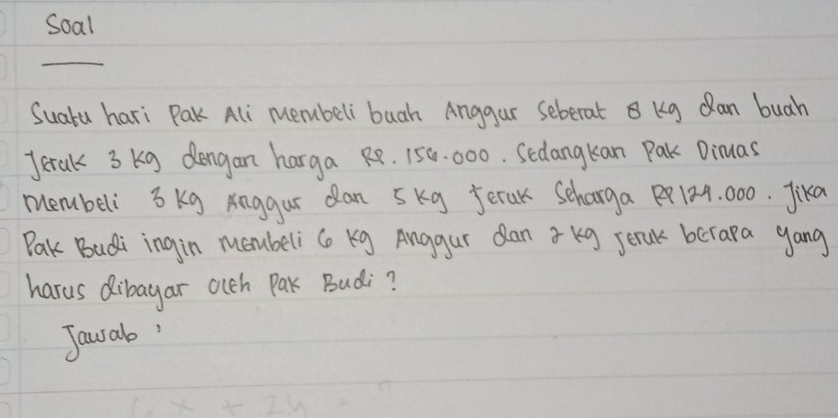 Soal
Suatu hari Pak Ali membeli buah Anggur seberat 8 kg dan buah
Jeruk 3 kg dengan harga Rp. 154.000. Sedangkan Pak Dimas
membeli 3 kg Anggur dan 5 kg Jeruk Seharga Rp 124.000. Jika
Pak Budi ingin membeli 6 kg Anggur dan 2 kg jeruk berapa yang
harus dibayar oleh Pak Budi?
Jawab :
x + 2y =